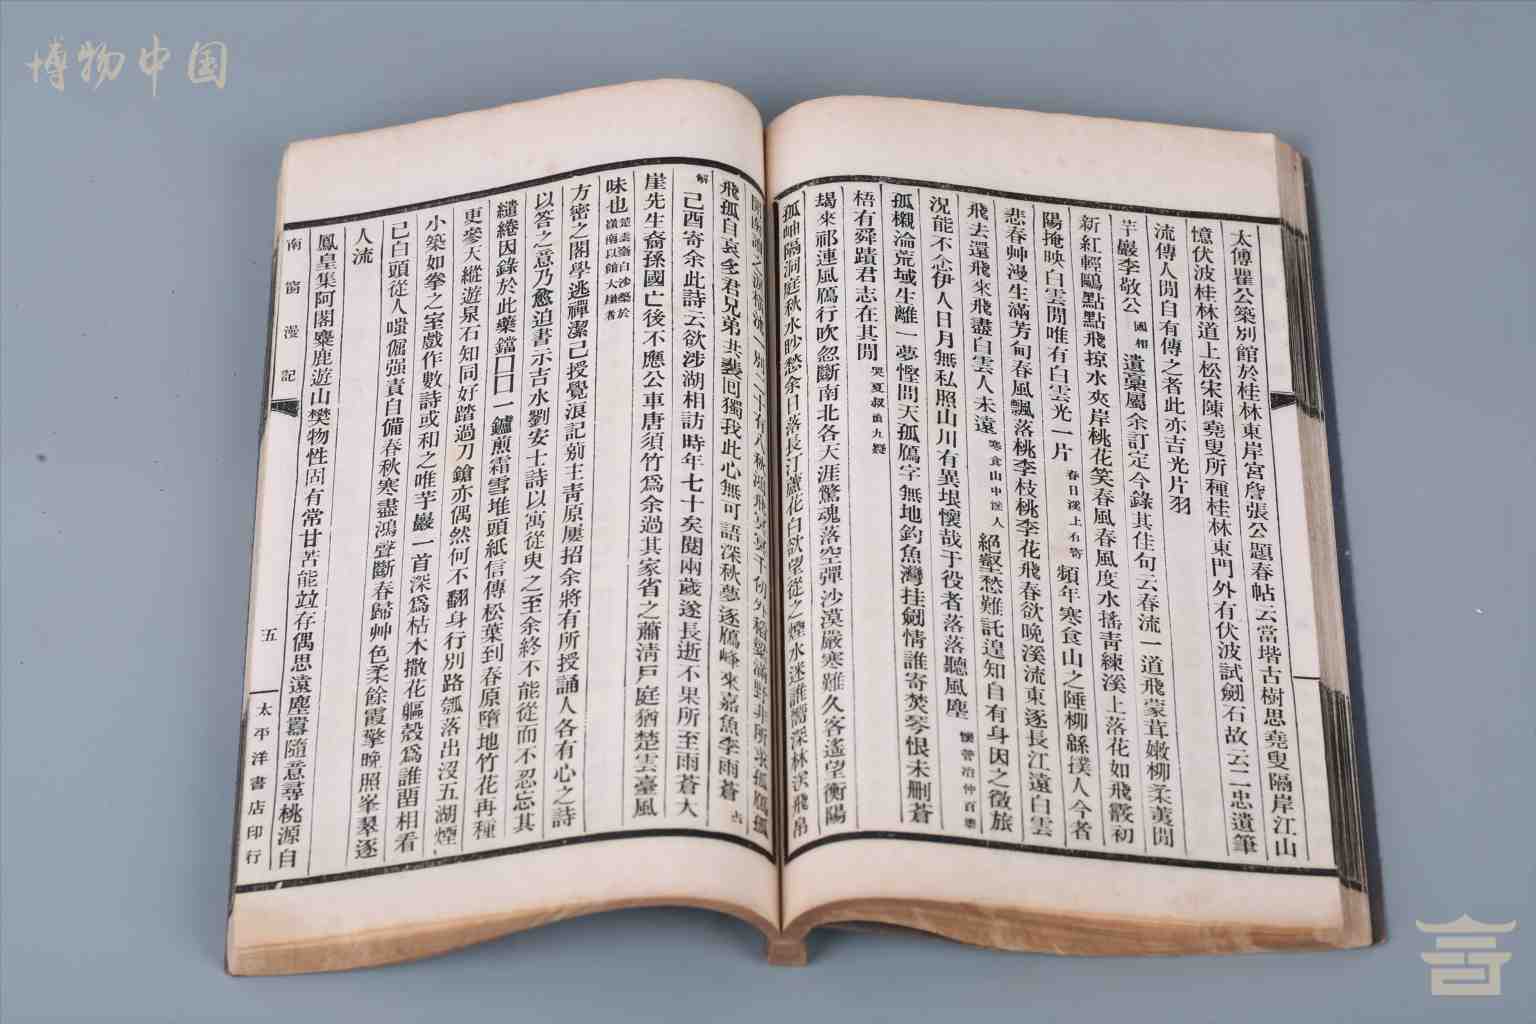 博物中国
太傅瞿公築別館於桂林東岸宮詹張公題春帖云當堦古樹思堯叟隔岸江山
憶伏波桂林道上松宋陳堯叟所種桂林東門外有伏波試劒石故云二忠遺筆
流傳人閒自有傳之者此亦吉光片羽
芋巖李敬公國相遺藁屬余訂定今錄其佳句云春流一道飛蒙茸嫩柳柔荑閒
新紅輕鷗點點飛掠水夾岸桃花笑春風春風度水搖青練溪上落花如飛霰初
陽掩映白雲閒唯有白雲光一片春日溪上有寄頻年寒食山之陲柳緜撲人今者
悲春艸漫生滿芳甸春風飄落桃李枝桃李花飛春欲晚溪流東逐長江遠白雲
飛去還飛來飛盡白雲人未遠寒食山中人絕壑愁難託遑知自有身因之徵旅
況能不念伊人日月無私照山川有異垠懷哉于役者落落聽風塵懷管冶仲百
孤櫬淪荒域生離一夢慳問天孤鴈字無地釣魚灣挂劒情誰寄焚琴恨未刪蒼
梧有舜蹟君志在其閒哭夏叔直九疑
朅來祁連風鴈行吹忽斷南北各天涯驚魂落空彈沙漠嚴寒難久客遙望衡陽
孤岫隔洞庭秋水眇愁余日落長汀蘆花白欲望從之煙水迷誰嚮深林溟飛帛
飛孤自哀念君兄弟共裴回獨我此心無可語深秋夢逐鴈峰來嘉魚李雨蒼占
解己酉寄余此詩云欲涉湖相訪時年七十矣閱兩歲遂長逝不果所至雨蒼大
崖先生裔孫國亡後不應公車唐須竹爲余過其家省之蕭淸戶庭猶楚雲臺風
味也楚雲臺白沙築於嶺南以館大崖者
方密之閣學逃禪潔己授覺浪記莂主靑原屢招余將有所授誦人各有心之詩
以答之意乃愈迫書示吉水劉安士詩以寓從臾之至余終不能從而不忍忘其
繾綣因錄於此藥鐺□□一鑪煎霜雪堆頭紙信傳松葉到春原墮地竹花再種
更參天縱遊泉石知同好踏過刀鎗亦偶然何不翻身行別路瓠落出沒五湖煙
小築如拳之室戲作數詩或和之唯芋巖一首深爲枯木撒花軀殼爲誰酉相看
已白頭從人嗤倔强責自備春秋寒盡鴻聲斷春歸艸色柔餘霞擎晩照峯翠逐
人流
鳳皇集阿閣麋鹿遊山樊物性固有常甘苦能竝存偶思遠塵囂隨意尋桃源自
南窗漫記
五
太平洋書店印行